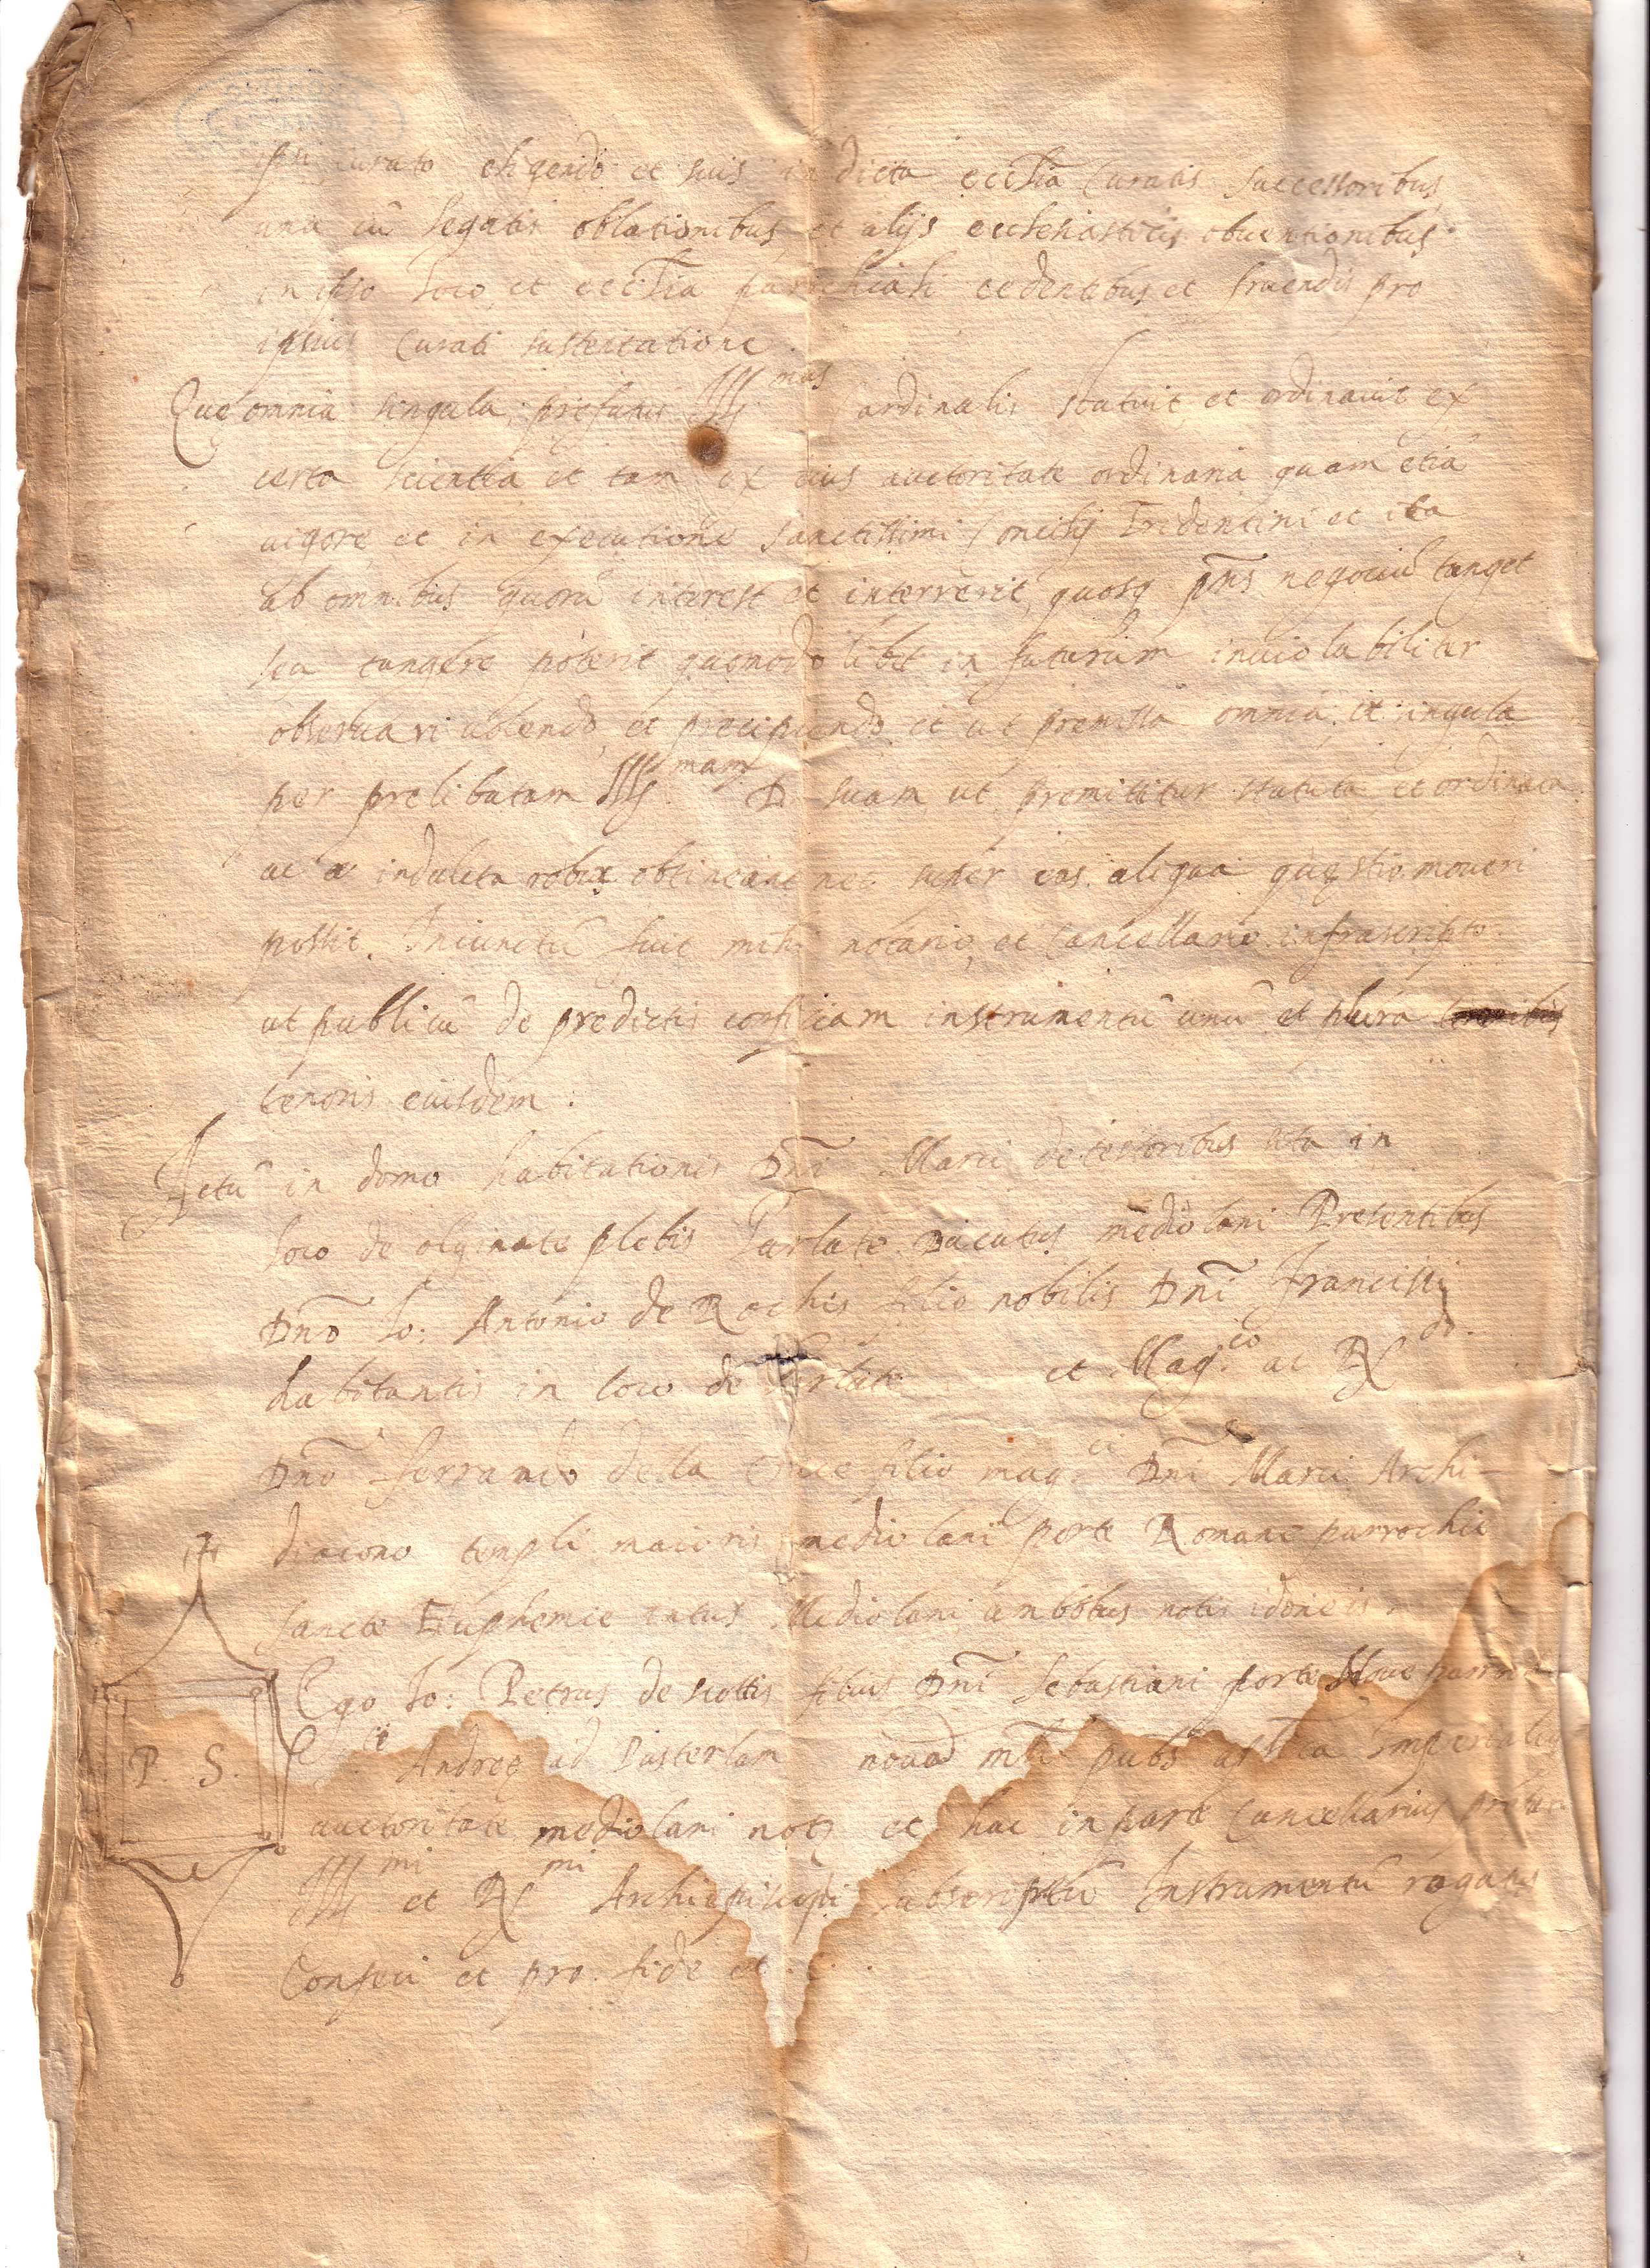 ipsi curato eligendo et suis in dicta eccl̃ia Curatis successoribus
una cũ legatis oblationibus et alijs ecclesiasticis obventionibus
in ipso loco et eccl̃ia parochiali cedentibus et fruendis pro
ipsius Curati sustentatione.
Que omnia singula prefatus Ill.mus Cardinalis statuit et ordinavit ex
certa scientia et tam ex eius auctoritate ordinaria quam etiã
vigore et in executione sanctissimi Concilij Tridentini et ita
ab omnibus quorũ interest et intererit, quosq pñs negociũ tanget
seu tangere poterit quomodolibet in futurum inviolabiliter
observari volendo et precipiendo et ut premissa omnia et singula
per prelibatam Ill.mam D. suam ut premittitur statuta et ordinata
ac indulta robur obtineant nec super eos aliqua questio moveri
possit. Iniunctũ fuit mihi notario, et Cancellario infrascripto
ut publicũ de predictis conficiam instrumentũ unũ et plura
tenoris eiusdem.
Actũ in domo habitationis Dñi Marci de testoribus sita in
loco de olginate plebis Garlate Ducatus mediolani Presentibus
Dño Io: Antonio de Rochis filio nobilis Dñi Francisci
habitantis in loco de Garlate et Mag.co ac R.do
Dño ferrando della Cruce filio mag.ci Dñi Marci Archi
diacono templi maioris mediolani porte Romane parrochie
sancte Euphemie intus Mediolani ambobus notis idoneis
Ego Io: Petrus de scottis filius Dñi Sebastiani porte Nove parro
S.te Andree ad Pusterlam novã mli pubs aplĩca Imperialiq
P. S.
auctoritate mediolani notq et hac in parte Cancellarius prefati
Ill.mi et R.mi Archiepiscopi subscriptũ Instrumentũ rogatus
Confeci et pro fide et c.